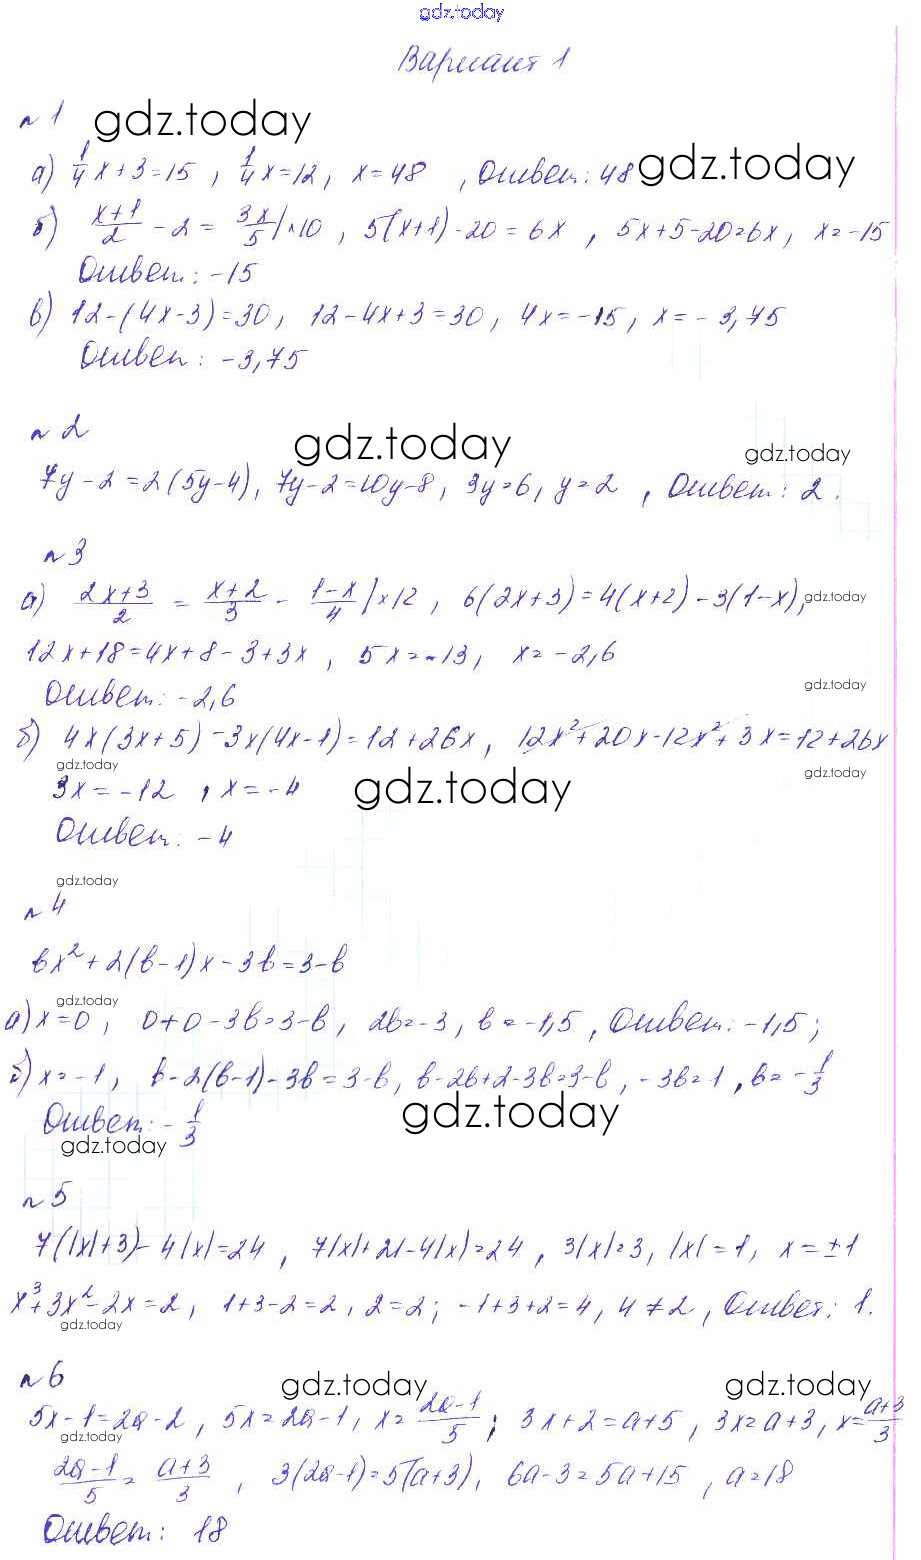 gdz.today
Вариант 1
№ 1 gdz.today
а) 1/4 x + 3 = 15 , 1/4 x = 12 , x = 48 , Ответ: 48 gdz.today
б) (x+1)/2 - 2 = 3x/5 | ×10 , 5(x+1) - 20 = 6x , 5x + 5 - 20 = 6x , x = -15
Ответ: -15
в) 12 - (4x - 3) = 30 , 12 - 4x + 3 = 30 , 4x = -15 , x = -3,75
Ответ: -3,75
№ 2 gdz.today gdz.today
7y - 2 = 2(5y - 4) , 7y - 2 = 10y - 8 , 3y = 6 , y = 2 , Ответ: 2.
№ 3
а) (2x+3)/2 = (x+2)/3 - (1-x)/4 | ×12 , 6(2x+3) = 4(x+2) - 3(1-x) , gdz.today
12x + 18 = 4x + 8 - 3 + 3x , 5x = -13 , x = -2,6
Ответ: -2,6 gdz.today
б) 4x(3x+5) - 3x(4x-1) = 12 + 26x , 12x² + 20x - 12x² + 3x = 12 + 26x
gdz.today gdz.today gdz.today
3x = -12 , x = -4
Ответ: -4
gdz.today
№ 4
bx² + 2(b-1)x - 3b = 3 - b
gdz.today
а) x = 0 , 0 + 0 - 3b = 3 - b , 2b = -3 , b = -1,5 , Ответ: -1,5 ;
б) x = -1 , b - 2(b-1) - 3b = 3 - b , b - 2b + 2 - 3b = 3 - b , -3b = 1 , b = -1/3
Ответ: -1/3 gdz.today
gdz.today
№ 5
7(|x|+3) - 4|x| = 24 , 7|x| + 21 - 4|x| = 24 , 3|x| = 3 , |x| = 1 , x = ±1
x³ + 3x² - 2x = 2 , 1 + 3 - 2 = 2 , 2 = 2 ; -1 + 3 + 2 = 4 , 4 ≠ 2 , Ответ: 1.
gdz.today
№ 6 gdz.today gdz.today
5x - 1 = 2a - 2 , 5x = 2a - 1 , x = (2a-1)/5 ; 3x + 2 = a + 5 , 3x = a + 3 , x = (a+3)/3
gdz.today
(2a-1)/5 = (a+3)/3 , 3(2a-1) = 5(a+3) , 6a - 3 = 5a + 15 , a = 18
Ответ: 18